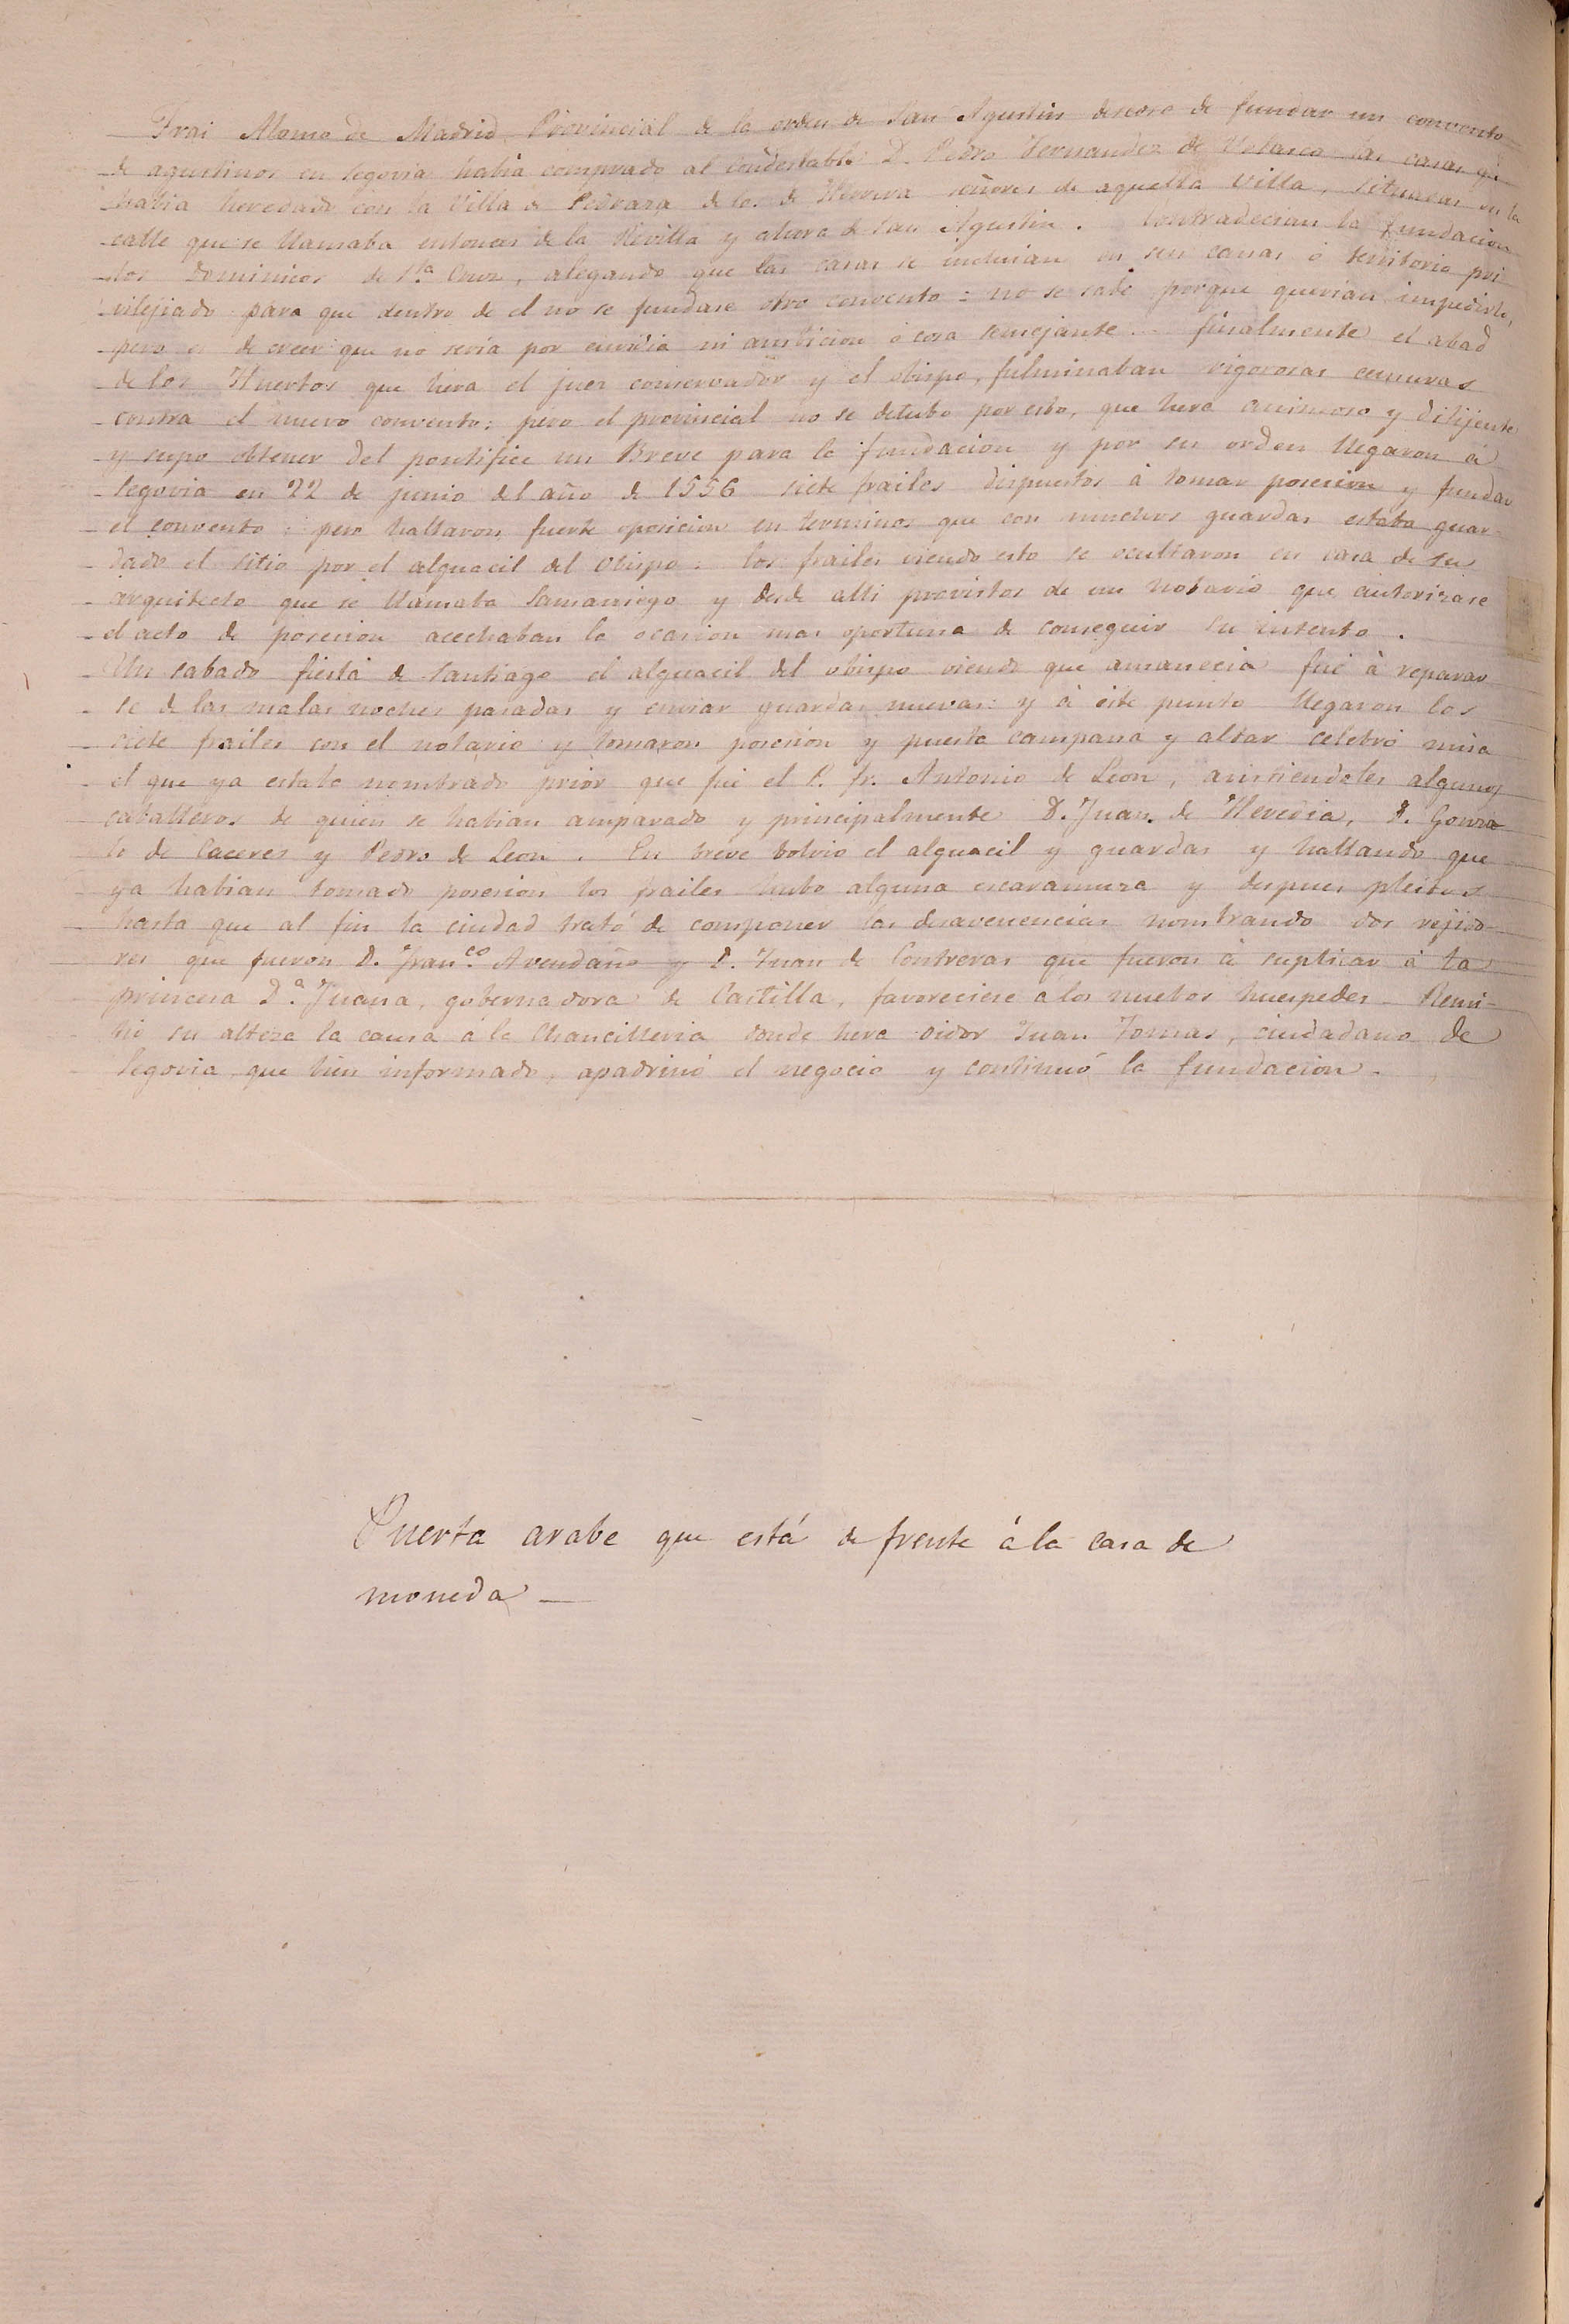 Frai Alonso de Madrid Provincial de la orden de San Agustin deseoso de fundar un convento
de agustinos en Segovia habia comprado al Condestable D. Pedro Fernandez de Velasco las casas que
habia heredado con la Villa de Pedraza de los de Herrera señores de aquella villa, situadas en la
calle que se llamaba entonces de la Revilla y ahora de San Agustin. Contradecian la fundacion
los Dominicos de Sta Cruz, alegando que las casas se incluian en sus canas ó territorio pri
vilejiado para que dentro de el no se fundase otro convento: no se sabe porque querian impedirlo,
pero es de creer que no seria por envidia ni ambicion ó cosa semejante. finalmente el abad
de los Huertos que hera el juez conservador y el obispo, fulminaban rigorosas censuras
contra el nuevo convento: pero el provincial no se detubo por esto, que hera animoso y dilijente
y supo obtener del pontifice un Breve para la fundacion y por su orden llegaron á
Segovia en 22 de junio del año de 1556 siete frailes dispuestos á tomar posesion y fundar
el convento: pero hallaron fuerte oposicion en terminos que con muchos guardas estaba guar-
dado el sitio por el alguacil del Obispo: los frailes viendo esto se ocultaron en casa de su
arquitecto que se llamaba Samaniego y desde alli provistos de un notario que autorizase
el acto de posesion acechaban la ocasion mas oportuna de conseguir su intento.
Un sabado fiesta de Santiago el alguacil del obispo viendo que amanecia fué à reparar
se de las malas noches pasadas y enviar guardas nuevas: y á este punto llegaron los
siete frailes con el notario y tomaron posesion y puesta campana y altar celebró misa
el que ya estaba nombrado prior que fué el P. fr. Antonio de Leon, asistiendoles algunos
caballeros de quien se habian amparado y principalmente D. Juan de Heredia, D. Gonza
lo de Caceres y Pedro de Leon. En breve bolvio el alguacil y guardas y hallando que
ya habian tomado posesion los frailes hubo alguna escaramuza y despues pleitos
hasta que al fin la ciudad trató de componer las desavenencias nombrando dos rejido-
res que fueron D. Fran.co Avendaño y D. Juan de Contreras que fueron á suplicar á la
princesa D.a Juana, gobernadora de Castilla, favoreciese a los nuebos huespedes. Remi-
tió su alteza la causa á la Chancilleria donde hera oidor Juan Tomas, ciudadano de
Segovia que bien informado, apadrinó el negocio y continuó la fundacion.
Puerta arabe que está de frente á la casa de
moneda —